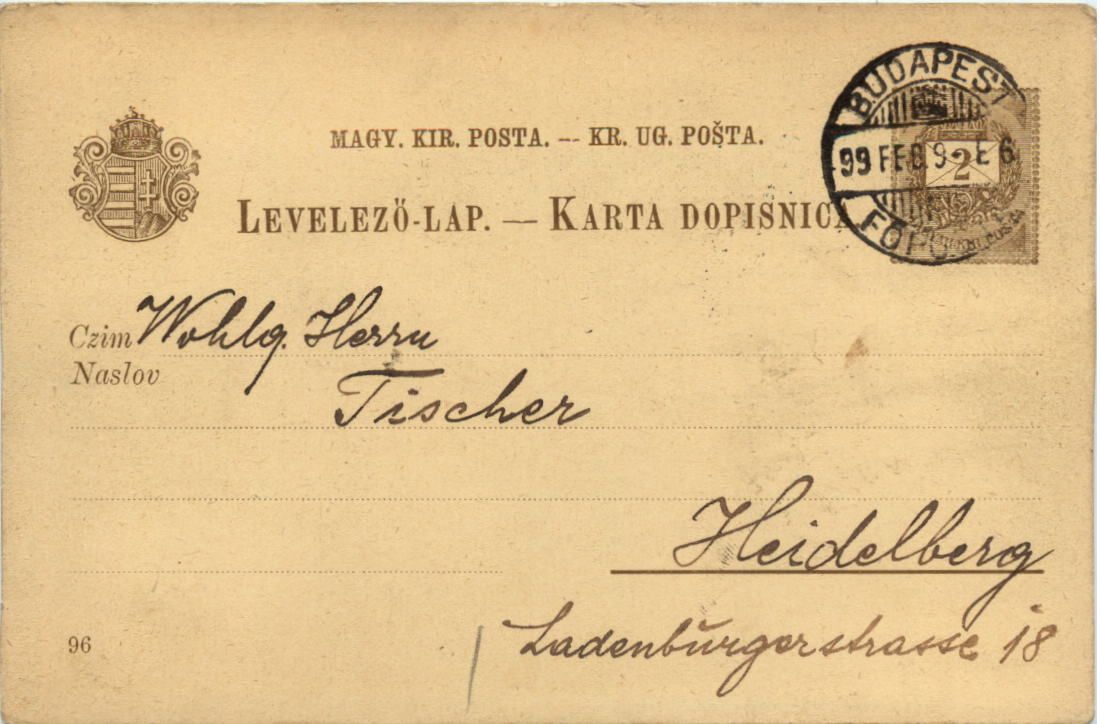 BUDAPEST
MAGY. KIR. POSTA. — KR. UG. POŠTA.
99 FEB. 9. E 6
2
LEVELEZŐ-LAP. — KARTA DOPISNICA
FŐPO
Czim Wohlg. Herrn
Naslov
Tischer
Heidelberg
96
Ladenburgerstrasse 18